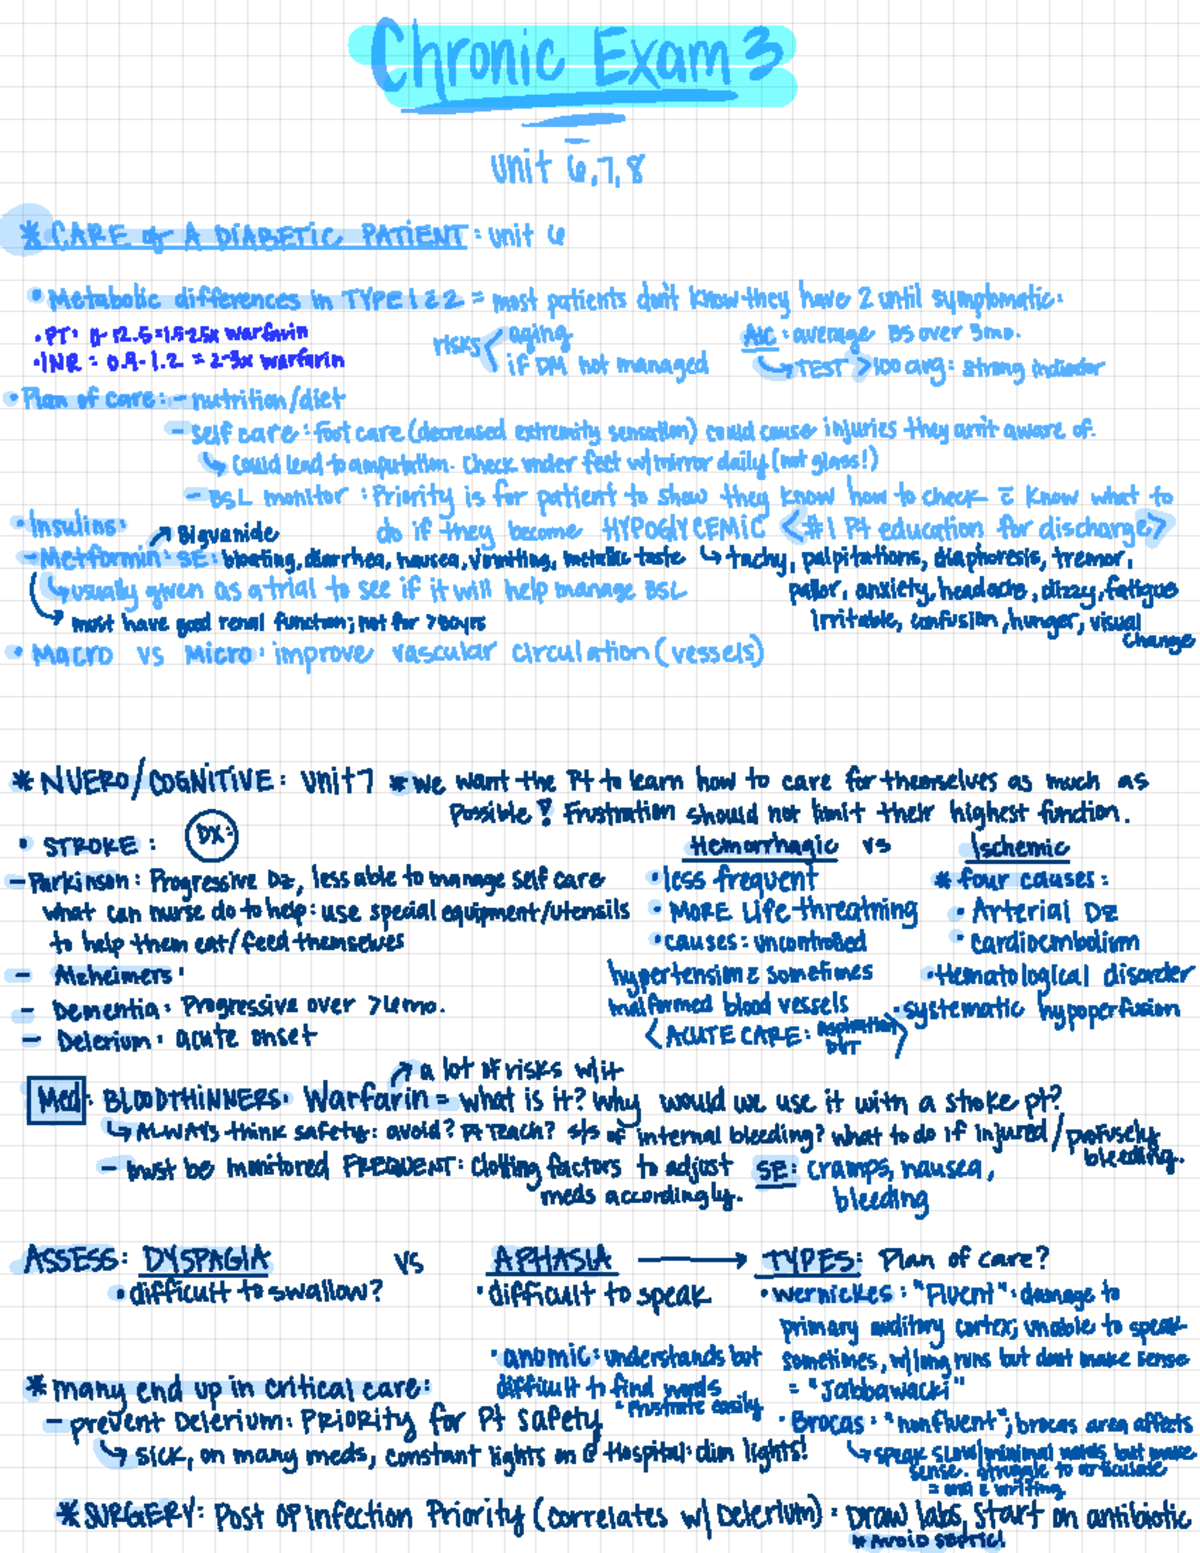 Chronic Exam 3
unit 6,7,8
* CARE of A DIABETIC PATIENT: unit 6
• Metabolic differences in TYPE 1 & 2 = most patients don't know they have 2 until symptomatic:
• PT: 11-12.5 = 1.5-2.5x warfarin
• INR = 0.9-1.2 = 2-3x warfarin
risks < aging
if DM not managed
A1C: average BS over 3mo.
↳ TEST >100 avg: strong indicator
• Plan of care: - nutrition/diet
- self care: foot care (decreased extremity sensation) could cause injuries they arn't aware of.
↳ could lead to amputation. Check under feet w/ mirror daily (not glass!)
- BSL monitor: Priority is for patient to show they know how to check c̄ know what to
do if they become HYPOGLYCEMIC <#1 Pt education for discharge>
↳ tachy, palpitations, diaphoresis, tremor,
pallor, anxiety, headache, dizzy, fatigue
irritable, confusion, hunger, visual
change
• Insulins:
↗ Biguanide
- Metformin: SE: bloating, diarrhea, nausea, vomiting, metallic taste
↳ usually given as a trial to see if it will help manage BSL
↳ must have good renal function; not for >80yrs
• Macro vs Micro: improve vascular circulation (vessels)
* NUERO/COGNITIVE: unit 7 * we want the Pt to learn how to care for themselves as much as
possible! Frustration should not limit their highest function.
• STROKE: DX:
- Parkinson: Progressive Dz, less able to manage self care
what can nurse do to help: use special equipment/utensils
to help them eat/feed themselves
- Alzheimers:
- Dementia: Progressive over >6mo.
- Delerium: acute onset
Hemorrhagic vs Ischemic
• less frequent
• MORE Life threatning
• causes: uncontrolled
hypertension & sometimes
malformed blood vessels
<ACUTE CARE: aspiration
DVT>
* four causes:
• Arterial Dz
• Cardioembolism
• Hematological disorder
• systematic hypoperfusion
↗ a lot of risks w/it
Med: BLOODTHINNERS: Warfarin = what is it? Why would we use it with a stroke pt?
↳ ALWAYS think safety: avoid? Pt teach? s/s of internal bleeding? what to do if injured/profusely
bleeding.
- must be monitored FREQUENT: clotting factors to adjust
meds accordingly.
SE: cramps, nausea,
bleeding
ASSESS: DYSPAGIA vs APHASIA → TYPES: Plan of care?
• difficult to swallow?
• difficult to speak
• anomic: understands but
difficult to find words
* frustrate easily
• Wernickes: "Fluent": damage to
primary auditory cortex; unable to speak
sometimes, w/ long runs but dont make sense
= "Jabbawacki"
• Brocas: "nonfluent"; brocas area affects
↳ speak slow/minimal words, but make
sense. struggle to articulate
= and c̄ writing
* many end up in critical care:
- prevent Delerium: PRIORITY for Pt safety
↳ sick, on many meds, constant lights on @ Hospital: dim lights!
* SURGERY: Post OP Infection Priority (correlates w/ Delerium): Draw labs, start on antibiotic
* AVOID SEPTIC!